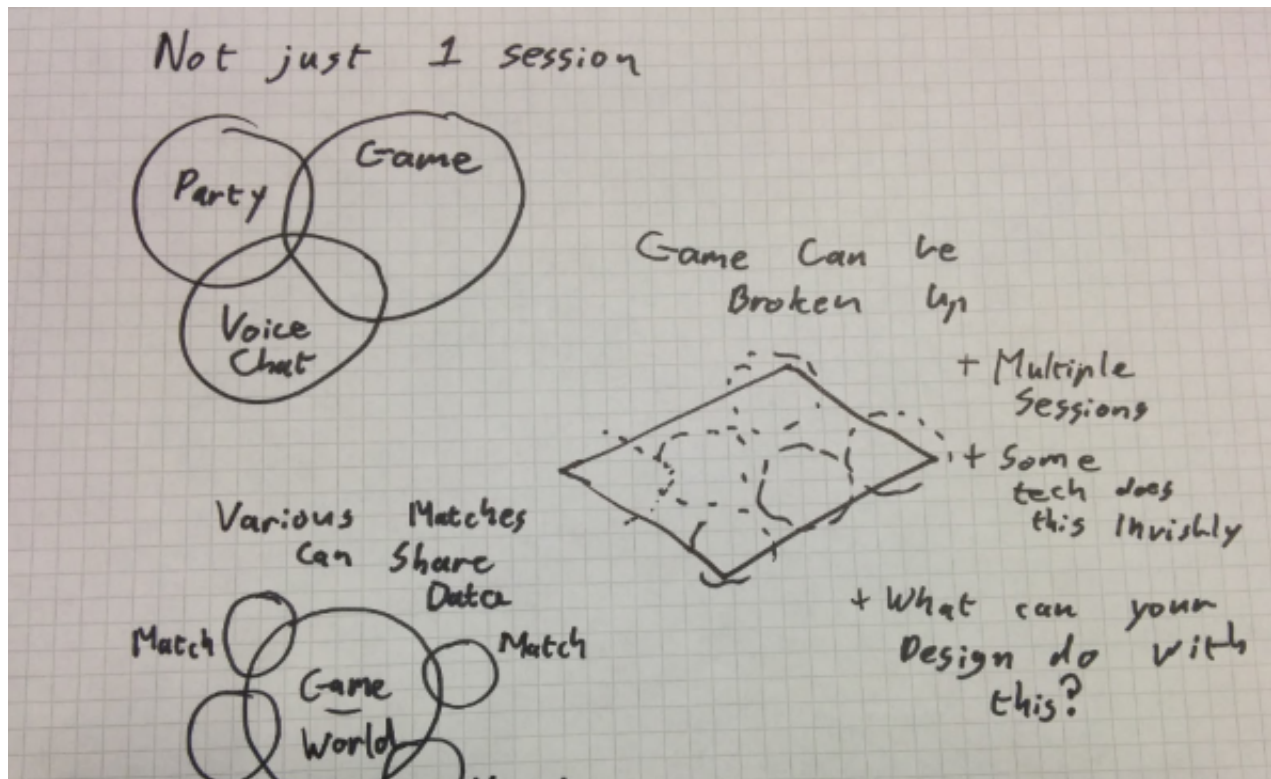 Not just 1 session
Party
Game
Voice
Chat
Game Can be
Broken Up
+ Multiple
Sessions
+ Some
tech does
this Invisibly
+ What can your
Design do with
this?
Various Matches
Can Share
Data
Match
Match
Game
World